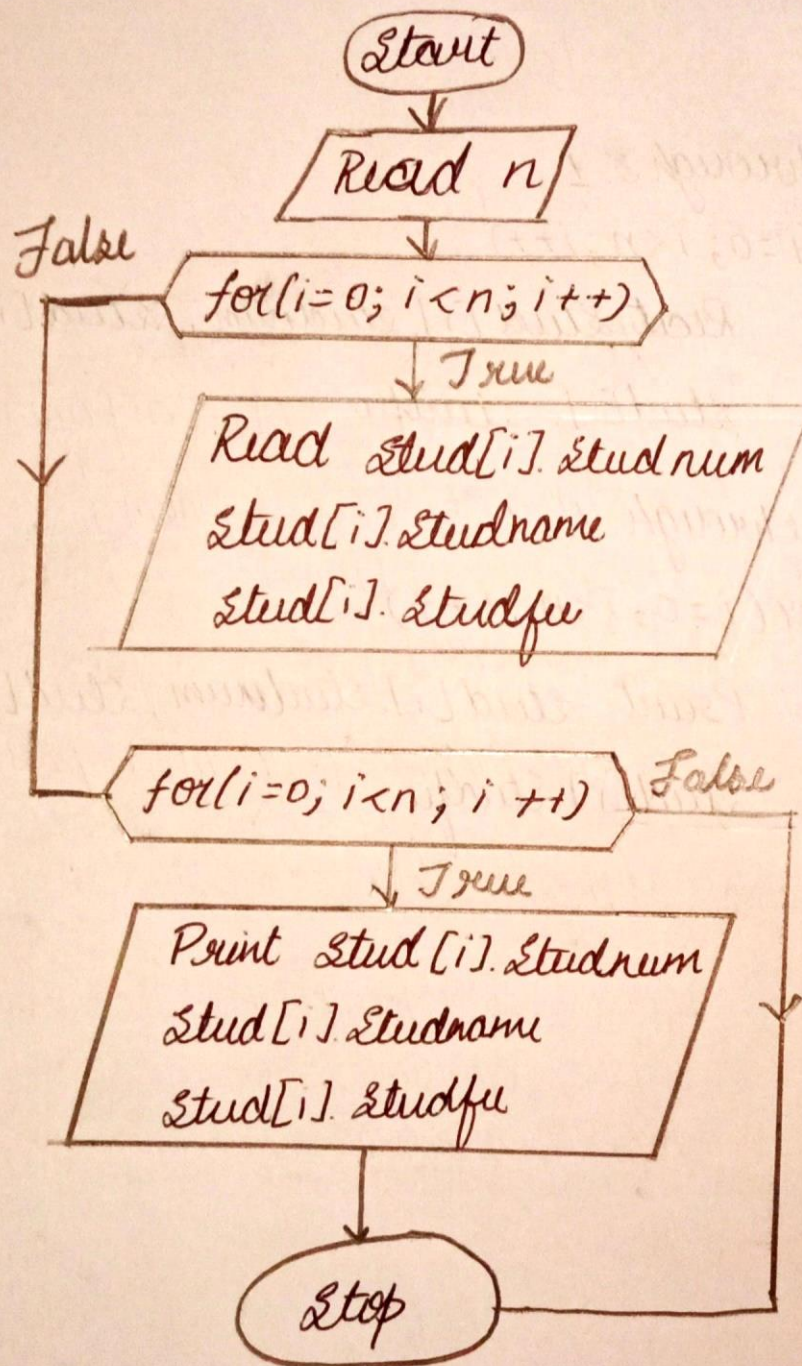 Start
Read n
False
for(i=0; i<n; i++)
True
Read Stud[i]. Studnum
Stud[i]. Studname
Stud[i]. Studfee
for(i=0; i<n; i++)
False
True
Print Stud[i]. Studnum
Stud[i]. Studname
Stud[i]. Studfee
Stop